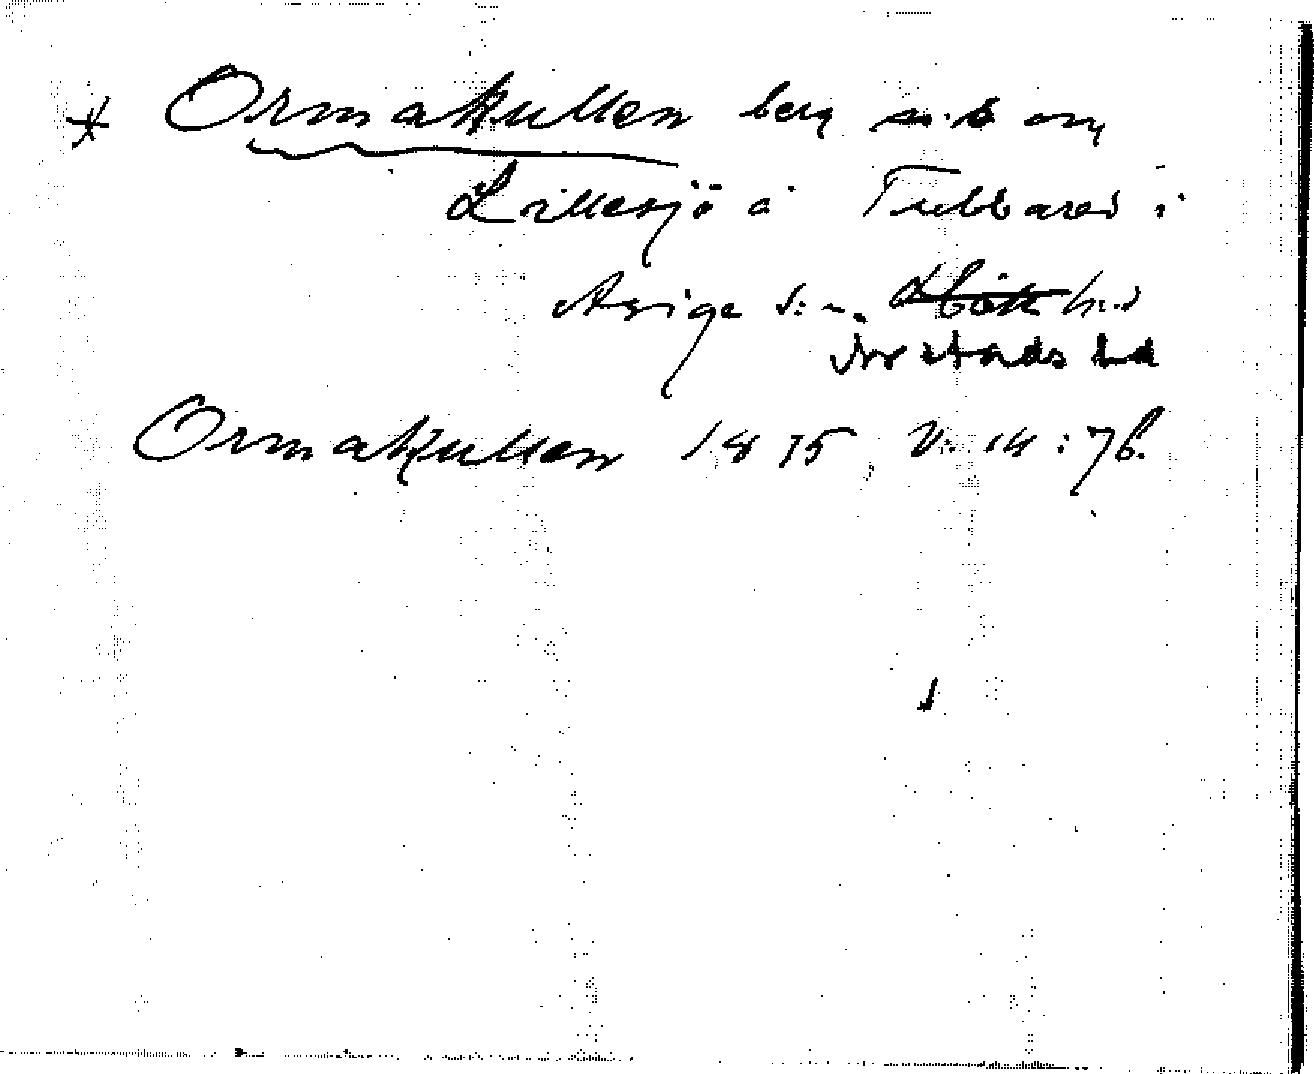 * Ormakullen berg n.b om
Lillesjö å Tubbared i
Asige s:n. hd
Årstads hd
Ormakullen 1875 V: 14:76.